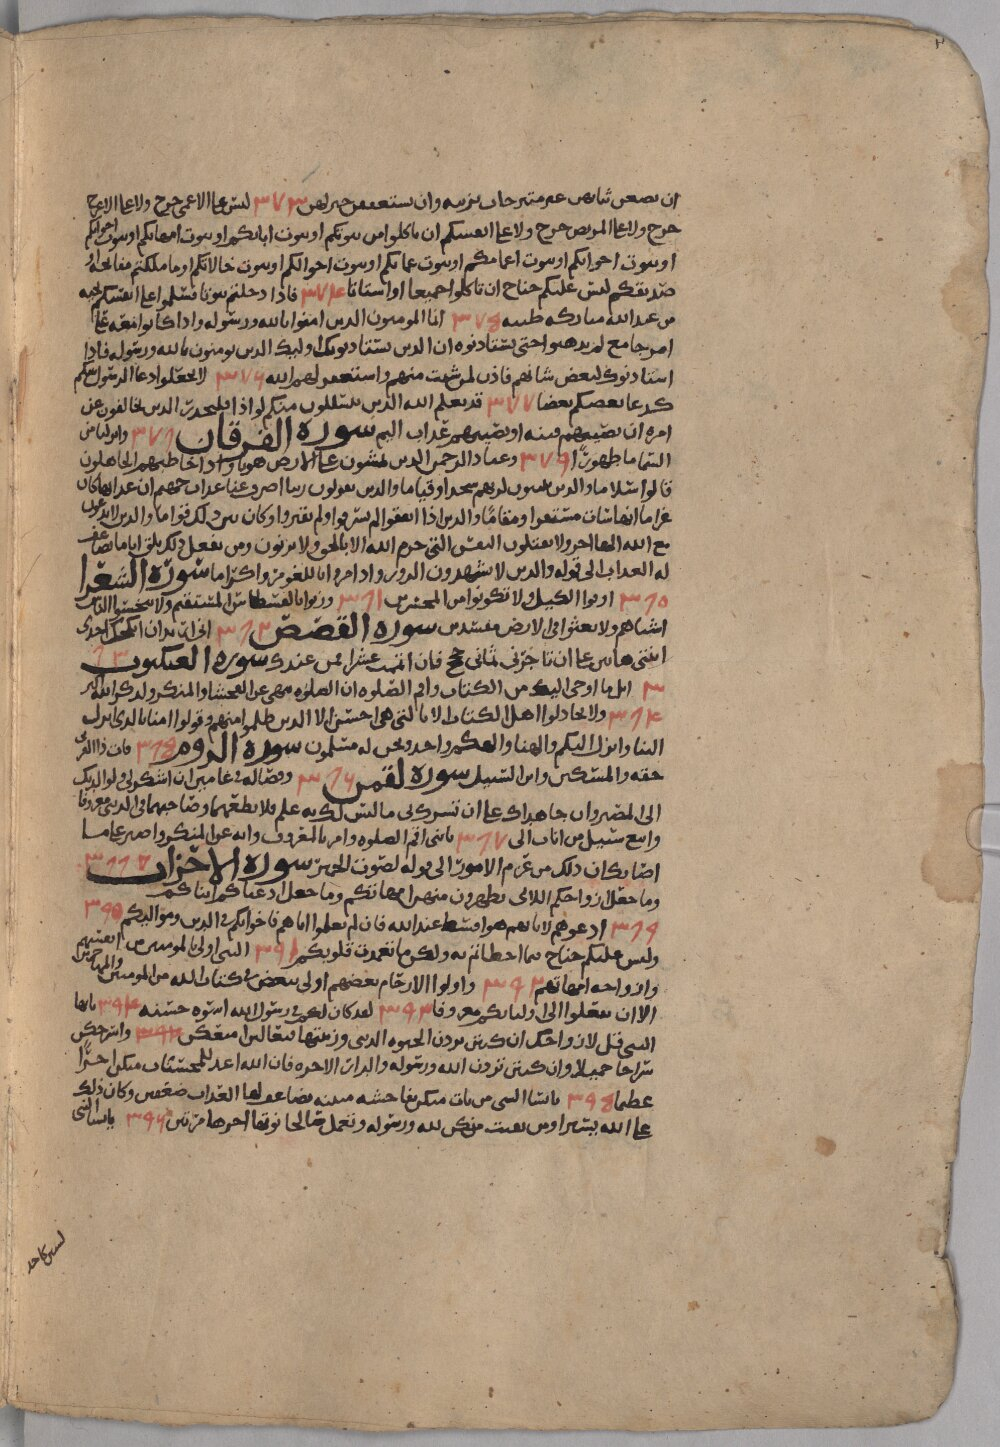 ٣
ان يضعن ثيابهن غير متبرجات بزينه وان يستعففن خير لهن ٣٧٣ ليس على الاعمى حرج ولا على الاعرج
حرج ولا على المريض حرج ولا على انفسكم ان تاكلوا من بيوتكم او بيوت ابائكم او بيوت امهاتكم او بيوت اخوانكم
او بيوت اخواتكم او بيوت اعمامكم او بيوت عماتكم او بيوت اخوالكم او بيوت خالاتكم او ما ملكتم مفاتحه او
صديقكم ليس عليكم جناح ان تاكلوا جميعا او اشتاتا ٣٧٤ فاذا دخلتم بيوتا فسلموا على انفسكم تحيه
من عند الله مباركه طيبه ٣٧٥ انما المومنون الذين امنوا بالله ورسوله واذا كانوا معه على
امر جامع لم يذهبوا حتى يستاذنوه ان الذين يستاذنونك اوليك الذين يومنون بالله ورسوله فاذا
استاذنوك لبعض شانهم فاذن لمن شيت منهم واستغفر لهم الله ٣٧٦ لا تجعلوا دعا الرسول بينكم
كدعا بعضكم بعضا ٣٧٧ قد يعلم الله الذين يتسللون منكم لواذا فليحذر الذين يخالفون عن
امره ان تصيبهم فتنه او يصيبهم عذاب اليم سوره الفرقان ٣٧٨ وانزلنا من
السما ما طهورًا ٣٧٩ وعباد الرحمن الذين يمشون على الارض هونا واذا خاطبهم الجاهلون
قالوا سلاما والذين يبيتون لربهم سجدا وقياما والذين يقولون ربنا اصرف عنا عذاب جهنم ان عذابها كان
غراما انها سات مستقرا ومقاما والذين اذا انفقوا لم يسرفوا ولم يقتروا وكان بين ذلك قواما والذين لا يدعون
مع الله الها اخر ولا يقتلون النفس التي حرم الله الا بالحق ولا يزنون ومن يفعل ذلك يلق اثاما يضاعف
له العذاب الى قوله والذين لا يشهدون الزور واذا مروا باللغو مروا كراما سوره الشعرا
٣٨٠ اوفوا الكيل ولا تكونوا من المخسرين ٣٨١ وزنوا بالقسطاس المستقيم ولا تبخسوا الناس
اشياهم ولا تعثوا في الارض مفسدين سوره القصص ٣٨٢ اني اريد ان انكحك احدى
ابنتي هاتين على ان تاجرني ثماني حجج فان اتممت عشرا فمن عندك سوره العنكبوت ٣٨
٣ اتل ما اوحي اليك من الكتاب واقم الصلوه ان الصلوه تنهى عن الفحشا والمنكر ولذكر الله اكبر
٣٨٤ ولا تجادلوا اهل الكتاب الا بالتي هي احسن الا الذين ظلموا منهم وقولوا امنا بالذي انزل
الينا وانزل اليكم والهنا والهكم واحد ونحن له مسلمون سوره الروم ٣٨٥ فات ذا القربى
حقه والمسكين وابن السبيل سوره لقمن ٣٨٦ وفصاله في عامين ان اشكر لي ولوالديك
الى المصير وان جاهداك على ان تشرك بي ما ليس لك به علم فلا تطعهما وصاحبهما في الدنيا معروفا
واتبع سبيل من اناب الى ٣٨٧ يا بني اقم الصلوه وامر بالمعروف وانه عن المنكر واصبر على ما
اصابك ان ذلك من عزم الامور الى قوله لصوت الحمير سوره الاحزاب ٣٨٨
وما جعل ازواجكم اللائي تظهرون منهن امهاتكم وما جعل ادعياكم ابناكم
٣٨٩ ادعوهم لابائهم هو اقسط عند الله فان لم تعلموا اباهم فاخوانكم في الدين ومواليكم ٣٩٠
وليس عليكم جناح فيما اخطاتم به ولكن ما تعمدت قلوبكم ٣٩١ النبي اولى بالمومنين من انفسهم
وازواجه امهاتهم ٣٩٢ واولوا الارحام بعضهم اولى ببعض في كتاب الله من المومنين والمهاجرين
الا ان تفعلوا الى اوليائكم معروفا ٣٩٣ لقد كان لكم في رسول الله اسوه حسنه ٣٩٤ يايها
النبي قل لازواجك ان كنتن تردن الحيوه الدنيا وزينتها فتعالين امتعكن واسرحكن
سراحا جميلا وان كنتن تردن الله ورسوله والدار الاخره فان الله اعد للمحسنات منكن اجرًا
عظيما ٣٩٥ يا نسا النبي من يات منكن بفاحشه مبينه يضاعف لها العذاب ضعفين وكان ذلك
على الله يسيرا ومن يقنت منكن لله ورسوله وتعمل صالحا نوتها اجرها مرتين ٣٩٦ يا نسا النبي
لستن كاحد